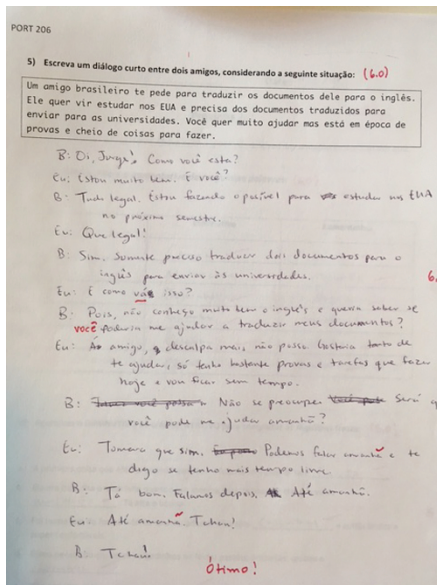 PORT 206
5) Escreva um diálogo curto entre dois amigos, considerando a seguinte situação: (6.0)
Um amigo brasileiro te pede para traduzir os documentos dele para o inglês.
Ele quer vir estudar nos EUA e precisa dos documentos traduzidos para
enviar para as universidades. Você quer muito ajudar mas está em época de
provas e cheio de coisas para fazer.
B: Oi, Como você esta?
Eu: Estou muito bem. E você?
B: Tudo legal. Estou fazendo o posível para estudar nos EUA
no próximo semestre.
Eu: Que legal!
B: Sim. Somente preciso traducir dois documentos para o
inglês para enviar às universidades.
Eu: E como vá isso?
B: Pois, não conheço muito bem o inglês e queria saber se
você poderia me ajudar a traduzir meus documentos?
Eu: amigo, desculpa mais, não posso. Gostaria tanto de
te ajudar, só tenho bastante provas e tarefas que fazer
hoje e vou ficar sem tempo.
B: Não se preocupe. Será q
você pode me ajudar amanhã?
Eu: Tomara que sim. Podemos falar amanhã e te
digo se tenho mais tempo livre.
B: Tá bom. Falamos depois. Até amanhã.
Eu: Até amanhã Tchau!
B: Tchau!
Ótimo!